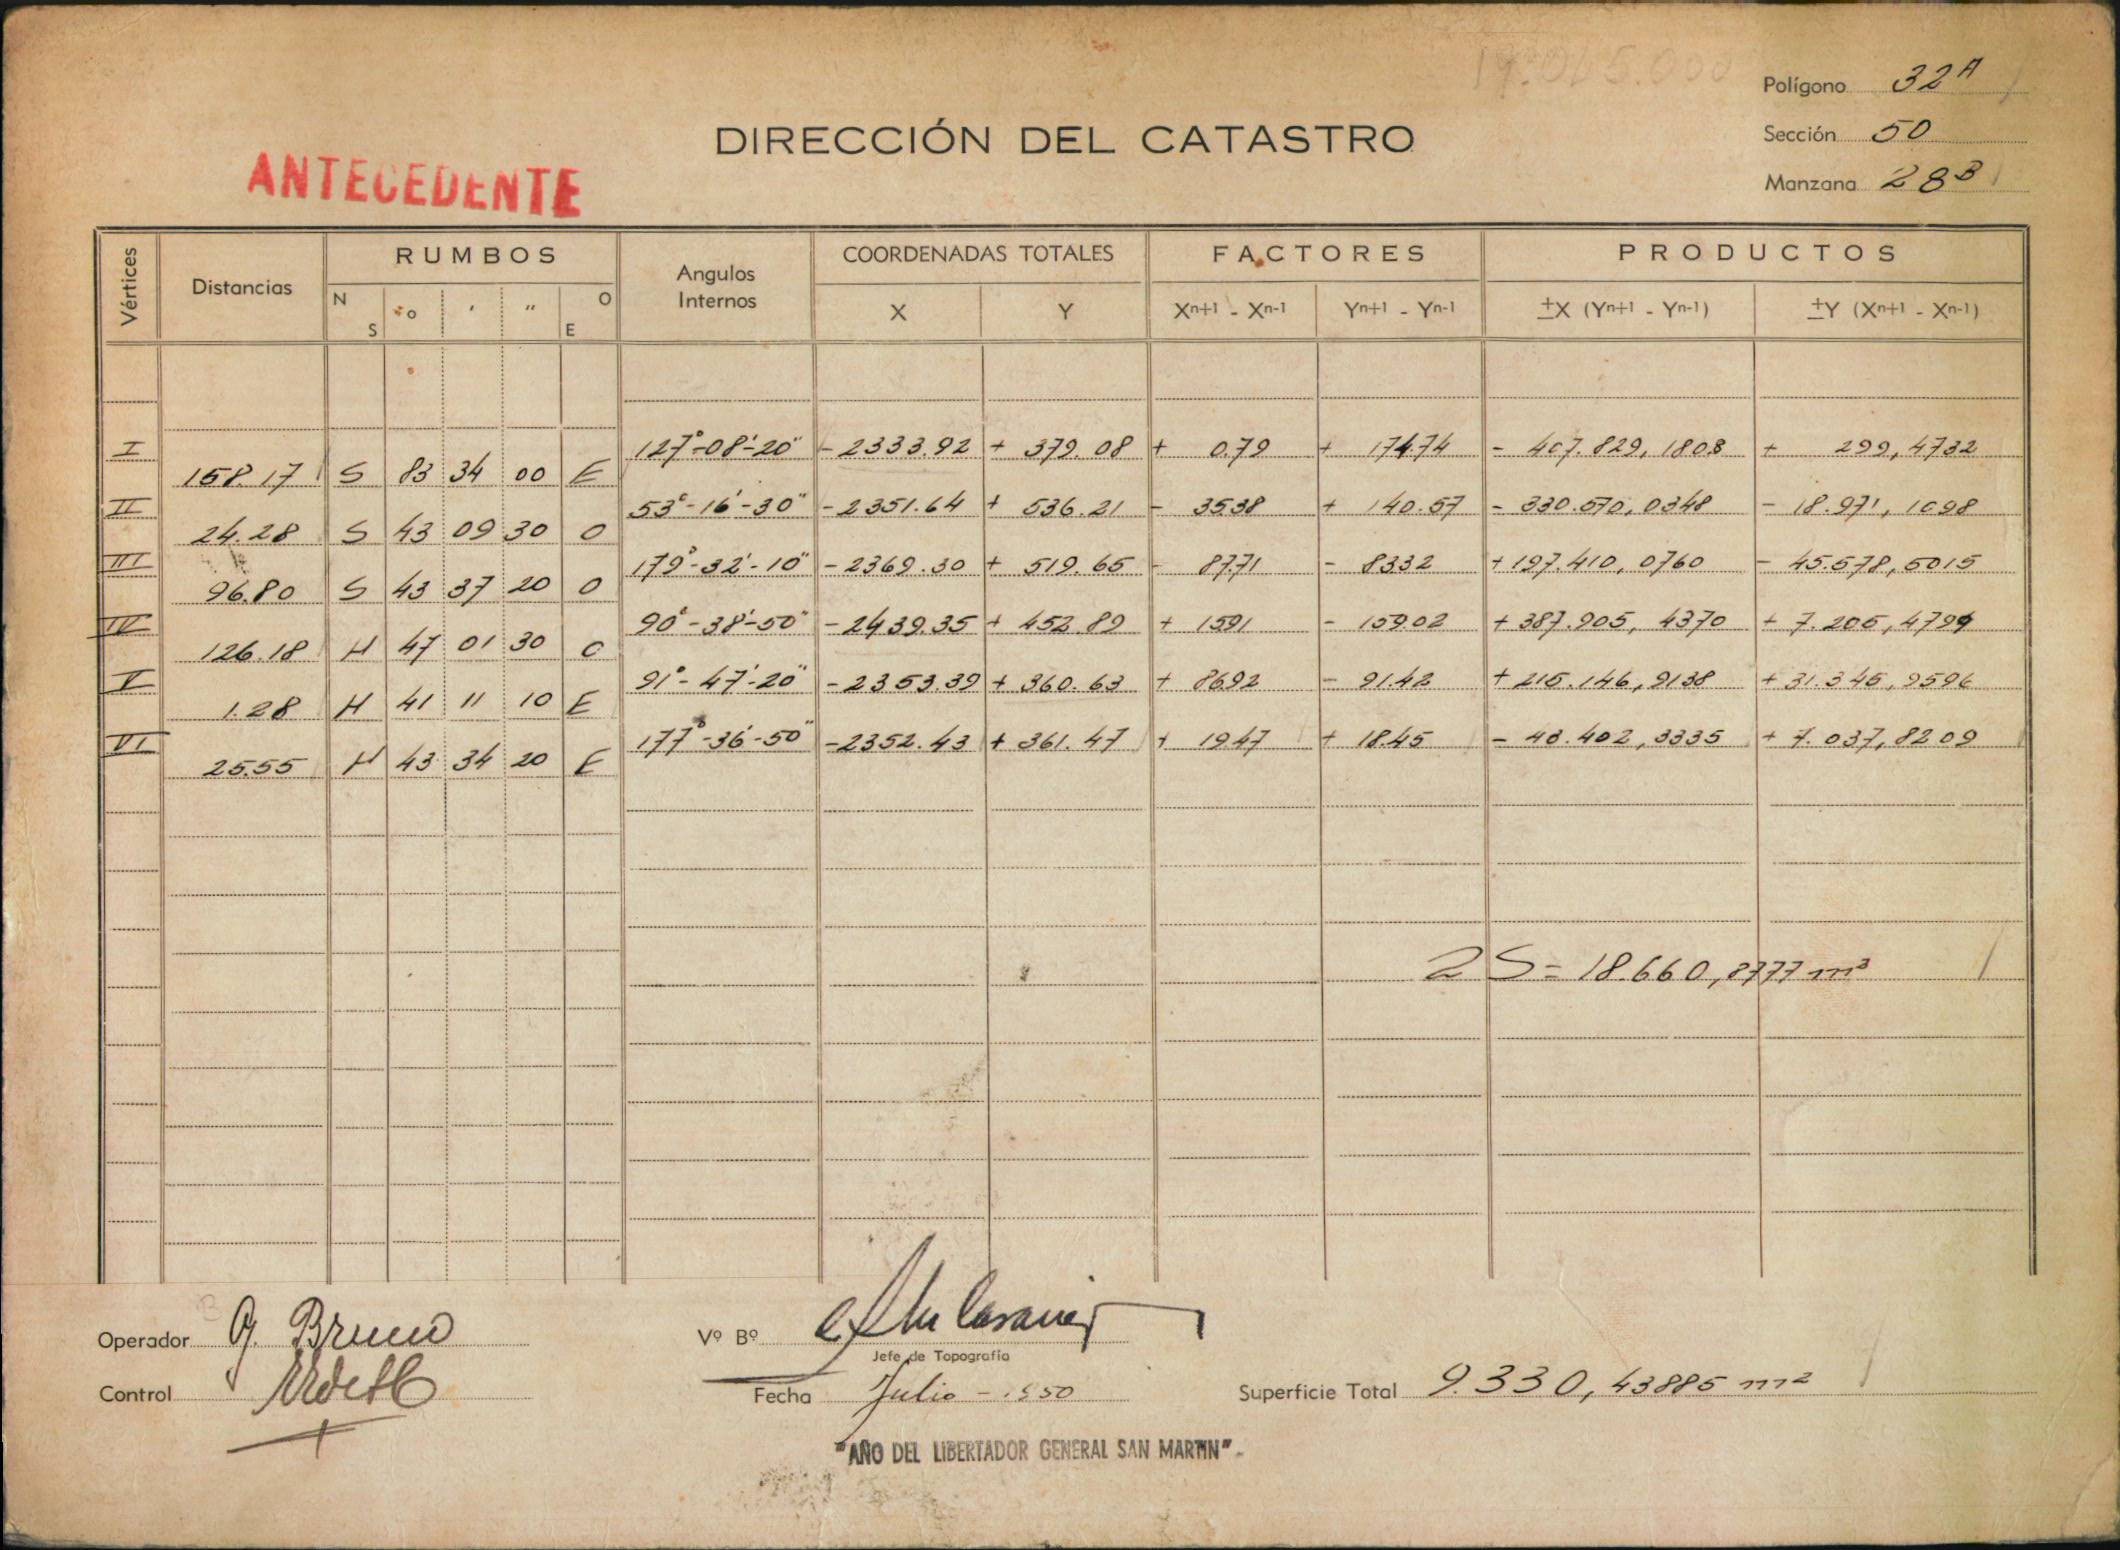 Polígono 32A
Sección 50
Manzana 28B
DIRECCIÓN DEL CATASTRO
ANTECEDENTE
Vértices Distancias RUMBOS Angulos Internos COORDENADAS TOTALES FACTORES PRODUCTOS
N S º ' " O E X Y Xn+1 - Xn-1 Yn+1 - Yn-1 ±X (Yn+1 - Yn-1) ±Y (Xn+1 - Xn-1)
I 127º-08'-20" -2333.92 + 379.08 + 0.79 + 174.74 - 407.829,1808 + 299,4732
158.17 S 83 34 00 E
II 53º-16'-30" -2351.64 + 536.21 - 35.38 + 140.57 - 330.570,0348 - 18.971,1098
24.28 S 43 09 30 O
III 179º-32'-10" -2369.30 + 519.65 - 87.71 - 83.32 + 197.410,0760 - 45.578,5015
96.80 S 43 37 20 O
IV 90º-38'-50" -2439.35 + 452.89 + 15.91 - 159.02 + 387.905,4370 + 7.205,4799
126.18 N 47 01 30 O
V 91º-47'-20" -2353.39 + 360.63 + 86.92 - 91.42 + 215.146,9138 + 31.345,9596
1.28 N 41 11 10 E
VI 177º-36'-50" -2352.43 + 361.47 + 19.47 + 18.45 - 43.402,3335 + 7.037,8209
25.55 N 43 34 20 E
2S = 18.660,8777 m²
Operador G. Bruno
Vº Bº
Jefe de Topografía
Control
Fecha Julio - 1950
Superficie Total 9.330,43885 m²
"AÑO DEL LIBERTADOR GENERAL SAN MARTIN"-